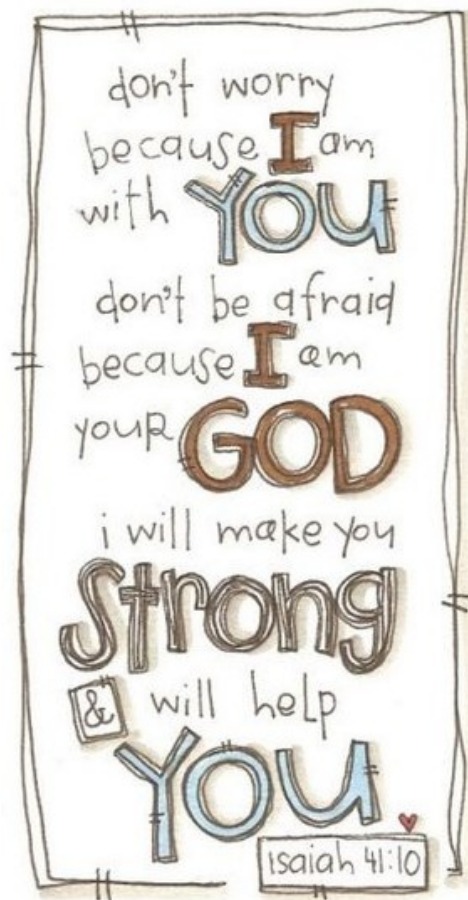 don't worry
because I am
with YOU
don't be afraid
because I am
your GOD
i will make you
Strong
& will help
YOU
Isaiah 41:10